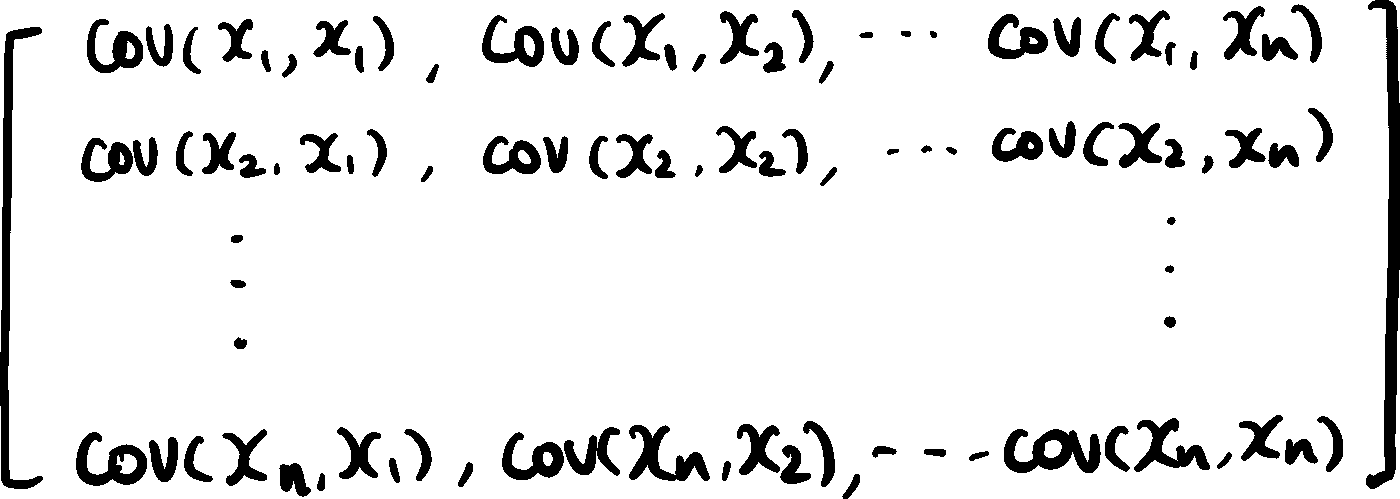 [ COV(x₁, x₁), COV(x₁, x₂), --- COV(x₁, xₙ)
COV(x₂, x₁), COV(x₂, x₂), --- COV(x₂, xₙ)
⋮ ⋮
COV(xₙ, x₁), COV(xₙ, x₂), --- COV(xₙ, xₙ) ]